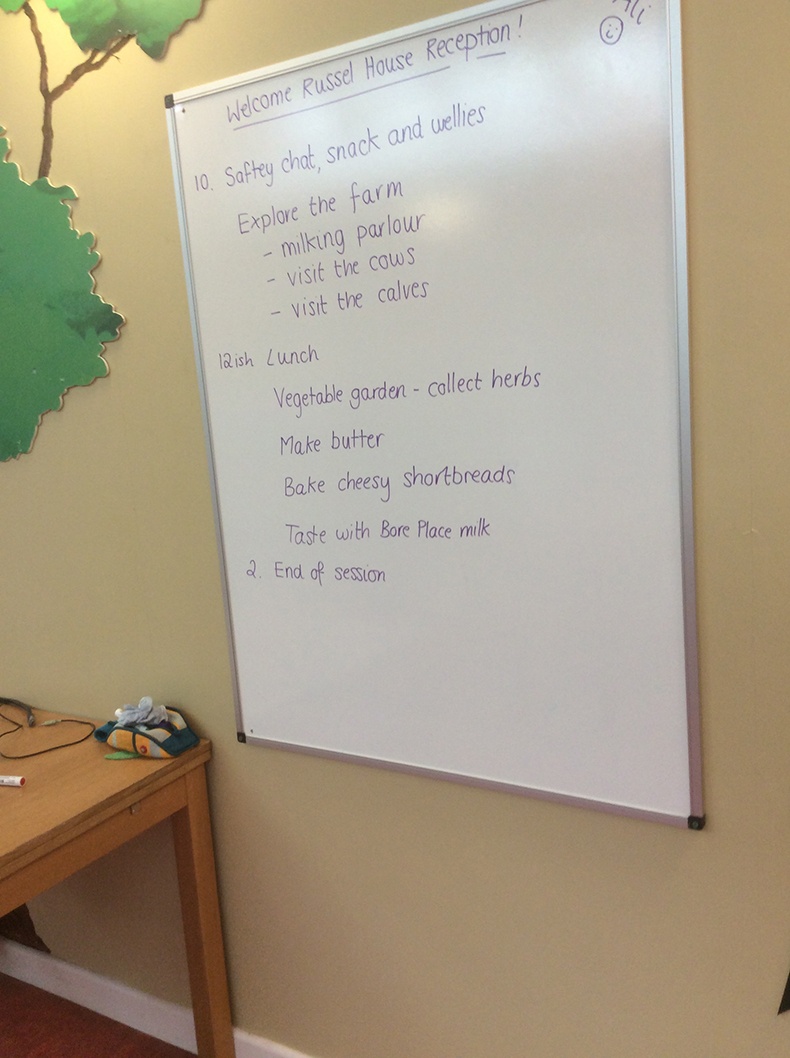 Welcome Russel House Reception!
10. Saftey chat, snack and wellies
Explore the farm
- milking parlour
- visit the cows
- visit the calves
12ish Lunch
Vegetable garden - collect herbs
Make butter
Bake cheesy shortbreads
Taste with Bore Place milk
2. End of session